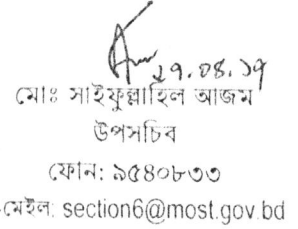 ২৭.০৪.১৭
মোঃ সাইফুল্লাহিল আজম
উপসচিব
ফোন: ৯৫৪০৮৩৩
মেইল: section6@most.gov.bd